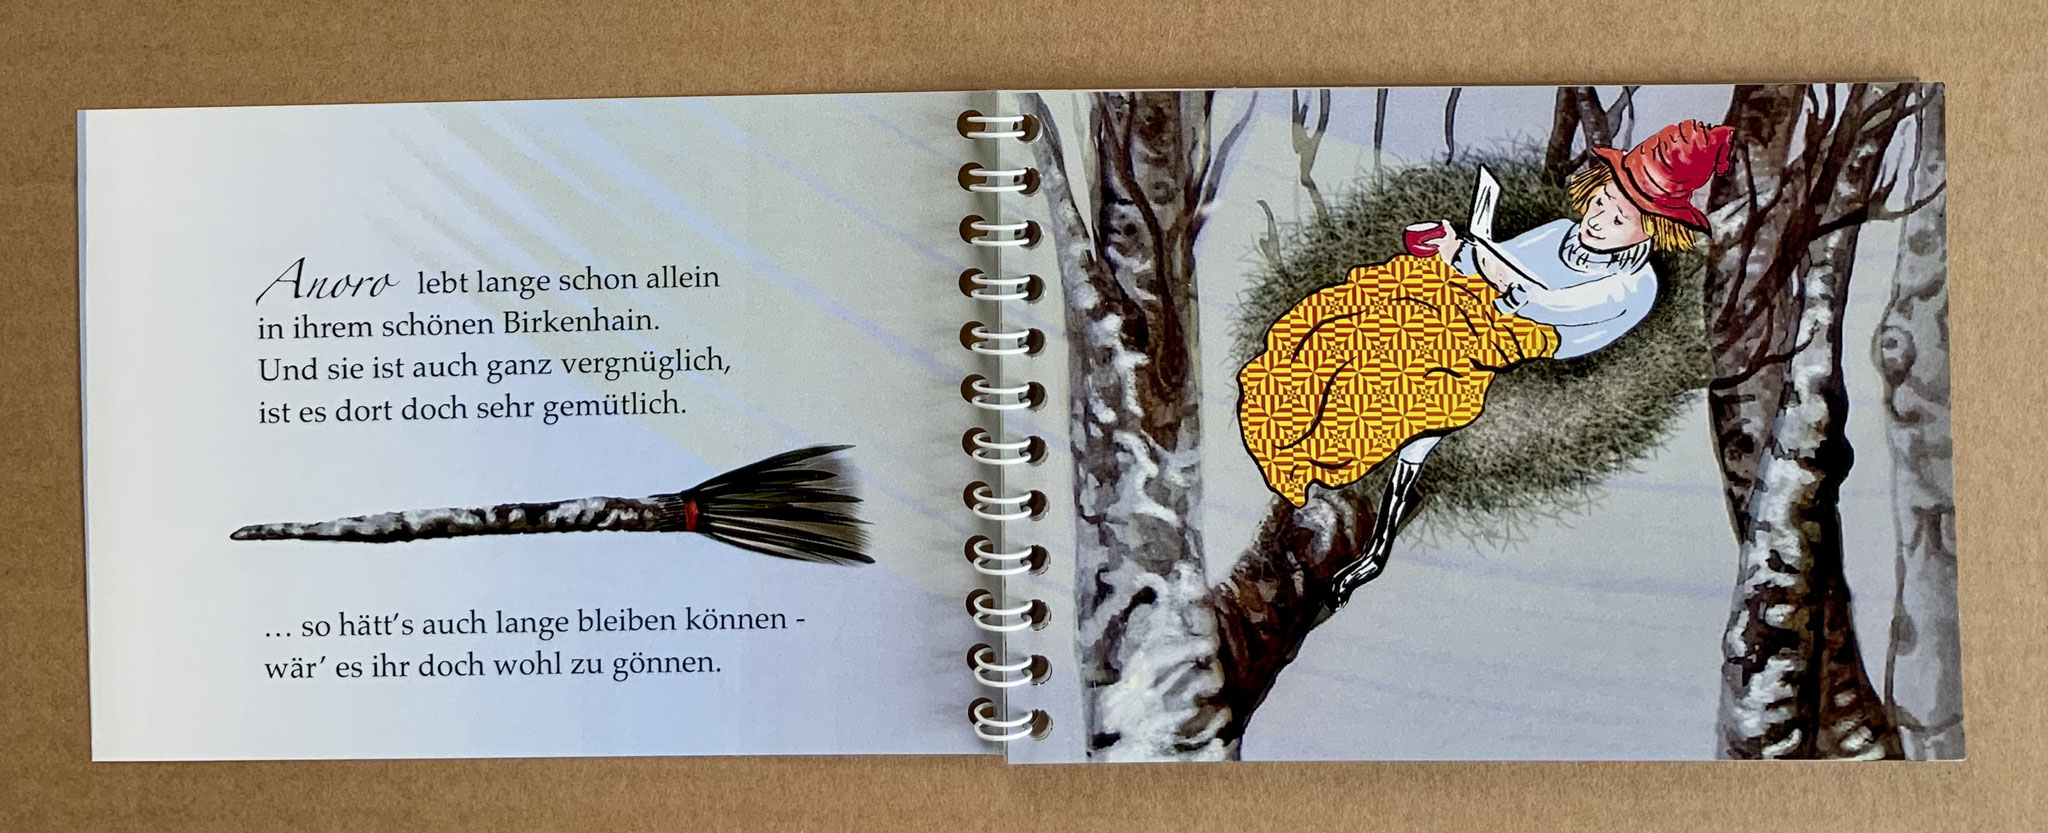 Anoro lebt lange schon allein
in ihrem schönen Birkenhain.
Und sie ist auch ganz vergnüglich,
ist es dort doch sehr gemütlich.
… so hätt’s auch lange bleiben können -
wär’ es ihr doch wohl zu gönnen.